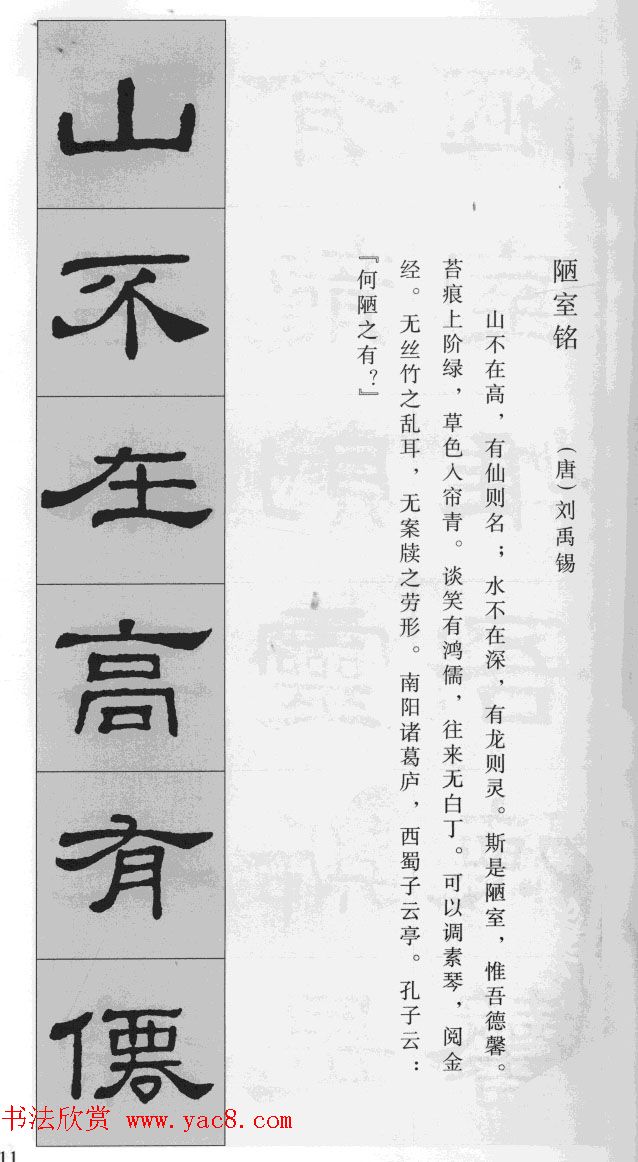 陋室铭 (唐)刘禹锡
山不在高，有仙则名；水不在深，有龙则灵。斯是陋室，惟吾德馨。
苔痕上阶绿，草色入帘青。谈笑有鸿儒，往来无白丁。可以调素琴，阅金
经。无丝竹之乱耳，无案牍之劳形。南阳诸葛庐，西蜀子云亭。孔子云：
『何陋之有？』
山不在高有僊
书法欣赏 www.yac8.com
11